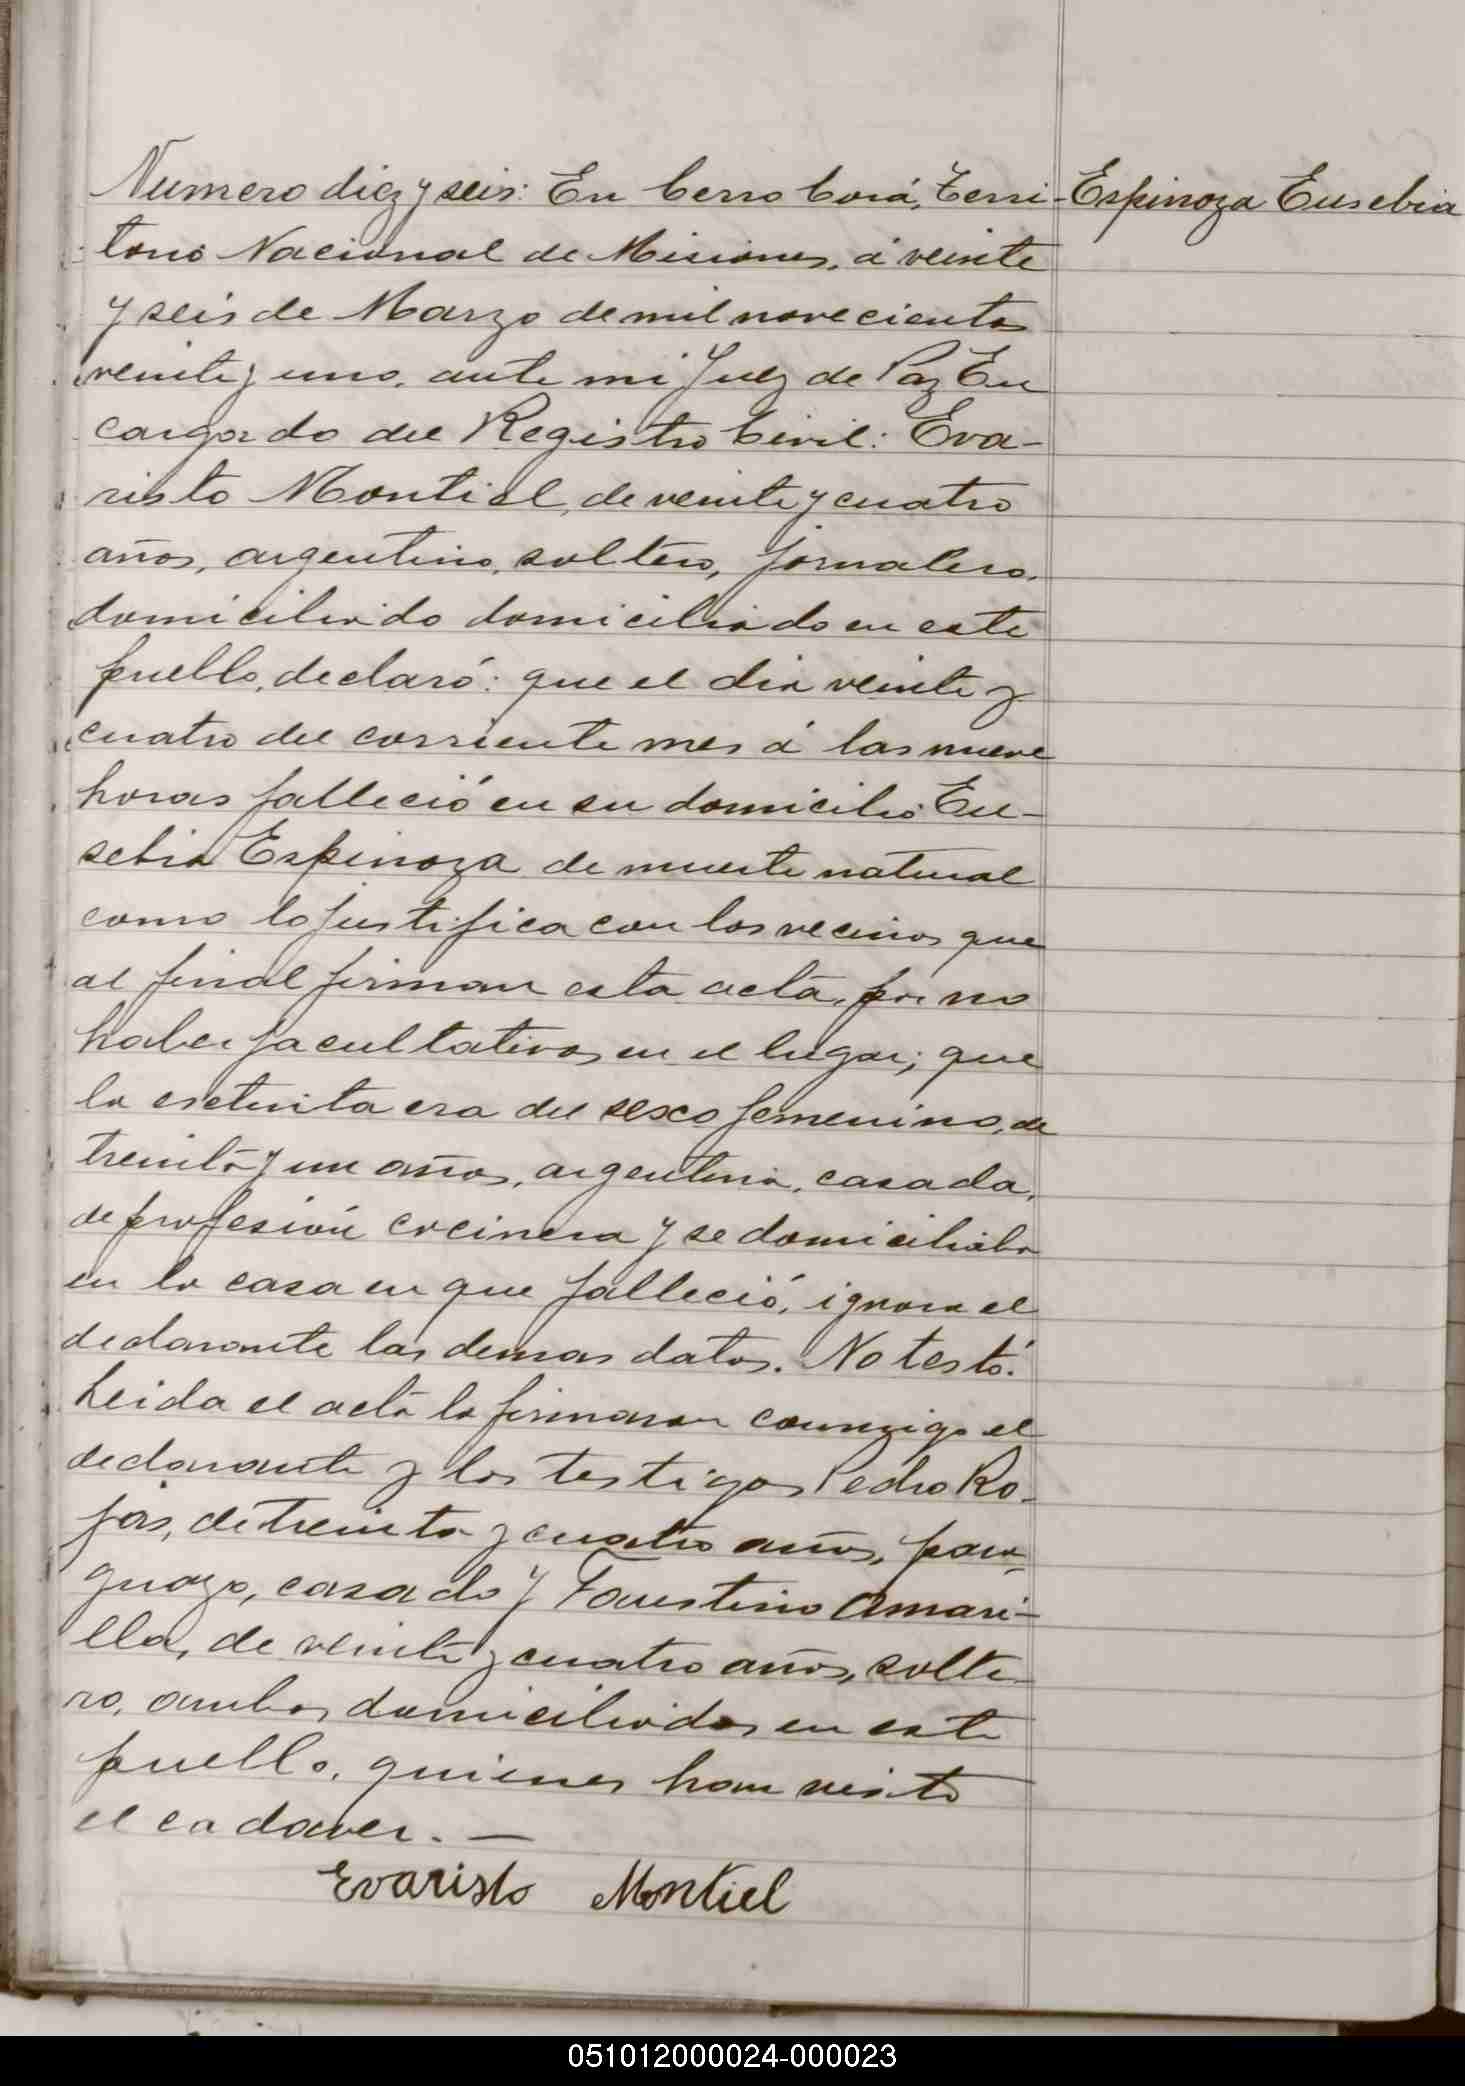 Numero diez y seis: En Cerro Corá, Terri- Espinoza Eusebia
torio Nacional de Misiones, á veinte
y seis de Marzo de mil novecientos
veinte y uno, ante mi Juez de Paz En
cargado del Registro Civil: Eva-
risto Montiel, de veinte y cuatro
años, argentino, soltero, jornalero,
domiciliado domiciliado en este
pueblo, declaró: que el dia veinte y
cuatro del corriente mes á las nueve
horas falleció en su domicilio Eu-
sebia Espinoza de muerte natural
como lo justifica con los vecinos que
al final firman esta acta, por no
haber facultativos en el lugar; que
la estinta era del sesxo femenino, de
treinta y un años, argentina, casada,
de profesión cocinera y se domiciliaba
en la casa en que falleció, ignora el
declarante los demas datos. No testó.
Leida el acta la firmaron counmigo el
declarante y los testigos Pedro Ro-
jas, de treinta y cuatro años, para-
guayo, casado y Faustino Amari-
lla, de veinte y cuatro años, solte-
ro, ambos domiciliados en este
pueblo, quienes han visto
el cadaver. —
Evaristo Montiel
051012000024-000023